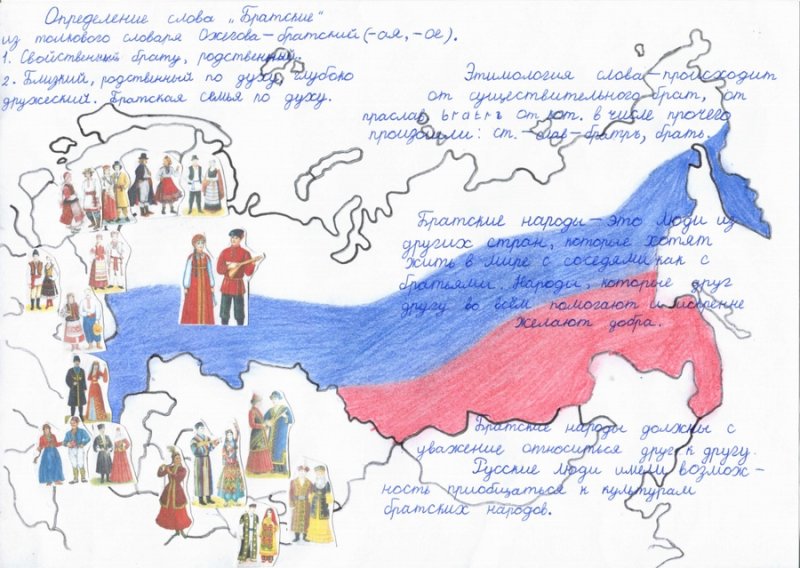 Определение слова „Братские"
из толкового словаря Ожегова-братский (-ая, -ое).
1. Свойственный брату, родственный.
2. Близкий, родственный по духу, глубоко
дружеский. Братская семья по духу.
Этимология слова-происходит
от существительного брат, от
праслав. bratrъ от кот. в числе прочего
произошли: ст.-слав-братръ, братъ.
Братские народы-это люди из
других стран, которые хотят
жить в мире с соседями как с
братьями. Народы, которые друг
другу во всём помогают и искренне
желают добра.
Братские народы должны с
уважение относиться друг к другу.
Русские люди имели возмож-
ность приобщаться к культурам
братских народов.